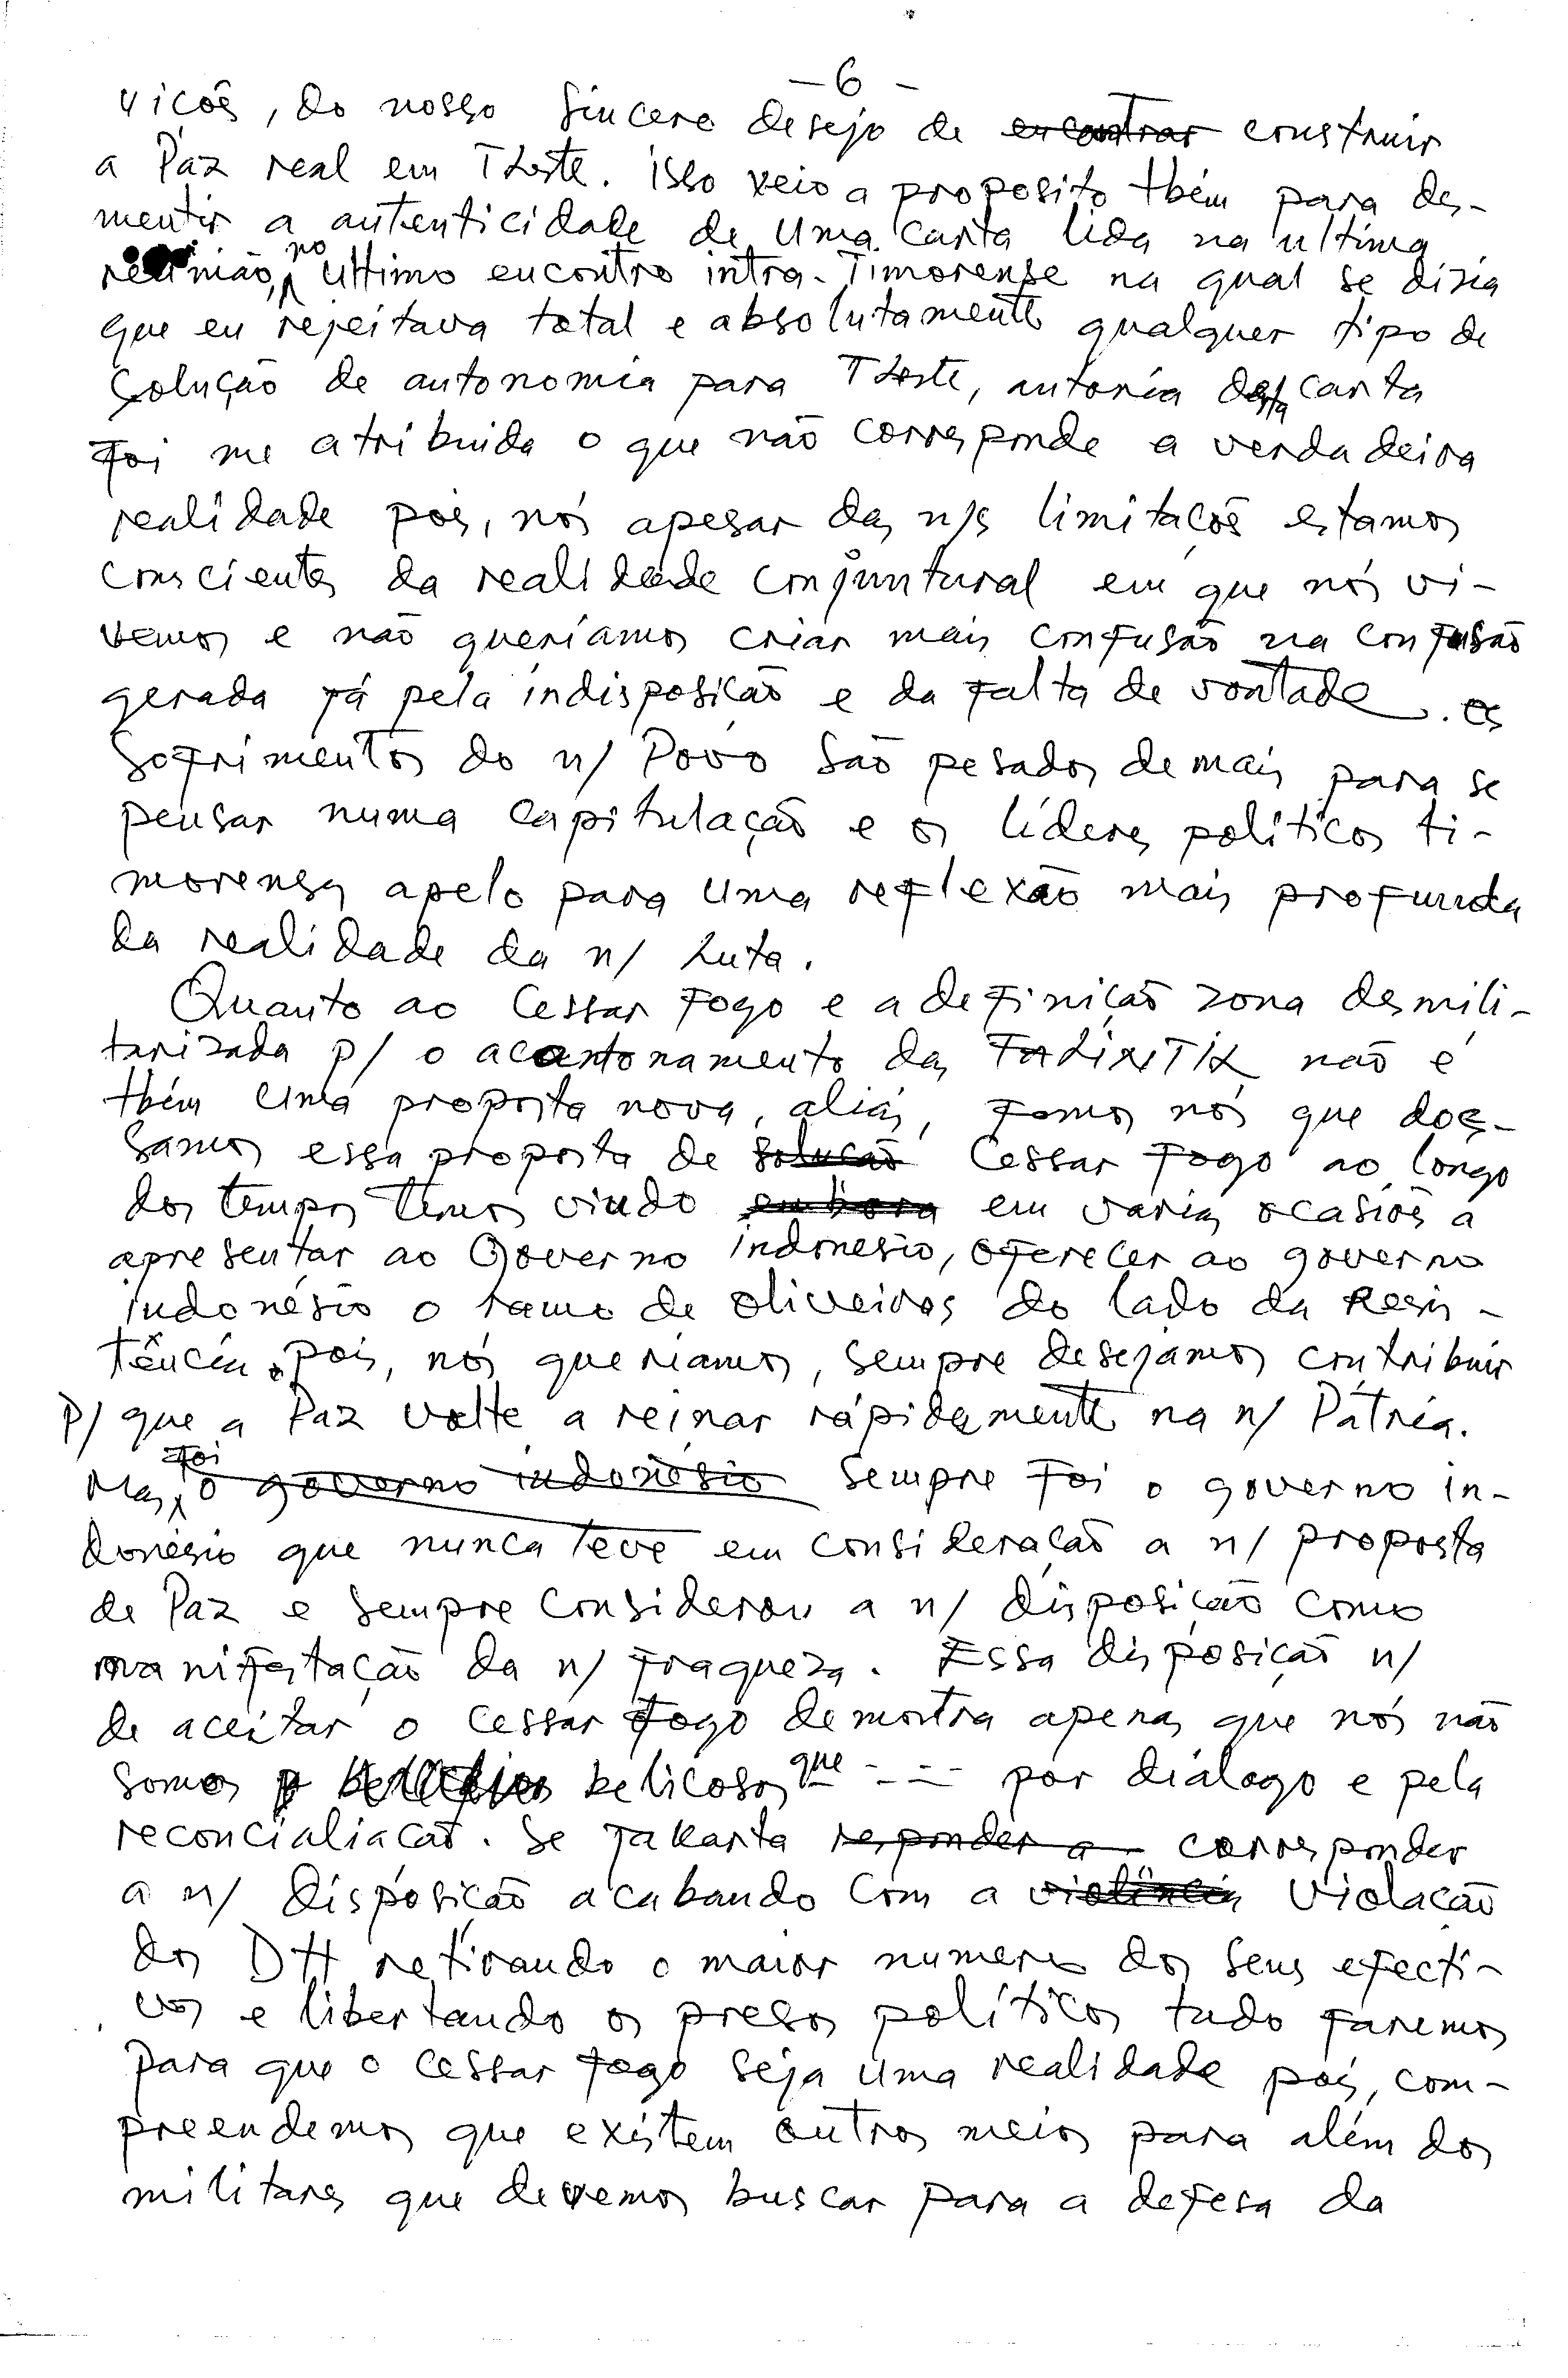 - 6 -
vicõs, do nosso sincero desejo de encontrar construir
a Paz real em TLeste. isso veio a proposito tbém para des-
mentir a autenticidade de uma carta lida na ultima
reunião, no ultimo encontro intra-Timorense na qual se dizia
que eu rejeitava total e absolutamente qualquer tipo de
solução de autonomia para TLeste, autoria desta carta
foi me atribuida o que não corresponde a verdadeira
realidade pois, nós apesar das n/s limitacões estamos
conscientes da realidade conjuntural em que nós vi-
vemos e não queriamos criar mais confusão na confusão
gerada já pela indisposicão e da falta de vontade. Os
sofrimentos do n/ Povo são pesados demais para se
pensar numa capitulação e os líderes politicos ti-
morenses apelo para uma reflexão mais profunda
da realidade da n/ Luta.
Quanto ao cessar fogo e a definicão zona desmili-
tarizada p/ o acantonamento das FALINTIL não é
tbém uma proposta nova, aliás, fomos nós que
samos essa proposta de solucão cessar fogo ao longo
dos tempos temos vindo embora em varias ocasiões a
apresentar ao Governo indonesio, oferecer ao governo
indonésio o ramo de oliveiras do lado da Resis-
tência, pois, nós queriamos, sempre desejamos contribuir
p/ que a Paz volte a reinar rápidamente na n/ Pátria.
Mas, foi o governo indonésio sempre foi o governo in-
donésio que nunca teve em consideracão a n/ proposta
de Paz e sempre considerou a n/ disposicão como
manifestação da n/ fraqueza. Essa disposiçaõ n/
de aceitar o cessar fogo demostra apenas que nós não
somos belicosos que - - - por diálogo e pela
reconcialiacaõ. Se Jakarta responder a corresponder
a n/ disposicão acabando com a violência violacão
dos DH retirando o maior numero dos seus efecti-
vos e libertando os presos políticos tudo faremos
para que o cessar fogo seja uma realidade pois, com-
preendemos que existem outros meios para além dos
militares que devemos buscar para a defesa da